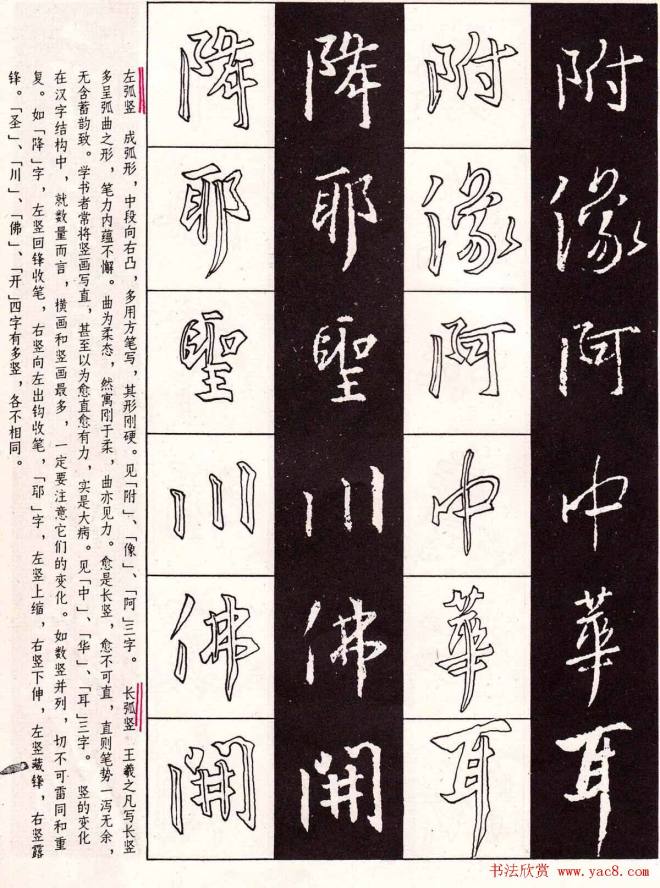 附像阿中華耳
附像阿中華耳
降耶聖川佛開
降耶聖川佛開
左弧竖 成弧形,中段向右凸,多用方笔写,其形刚硬。见「附」、「像」、「阿」三字。 长弧竖 王羲之凡写长竖
多呈弧曲之形,笔力内蕴不懈。曲为柔态,然寓刚于柔,曲亦见力。愈是长竖,愈不可直,直则笔势一泻无余,
无含蓄韵致。学书者常将竖画写直,甚至以为愈直愈有力,实是大病。见「中」、「华」、「耳」三字。 竖的变化
在汉字结构中,就数量而言,横画和竖画最多,一定要注意它们的变化。如数竖并列,切不可雷同和重
复。如「降」字,左竖回锋收笔,右竖向左出钩收笔,「耶」字,左竖上缩,右竖下伸,左竖藏锋,右竖露
锋。「圣」、「川」、「佛」、「开」四字有多竖,各不相同。
书法欣赏 www.yac8.com